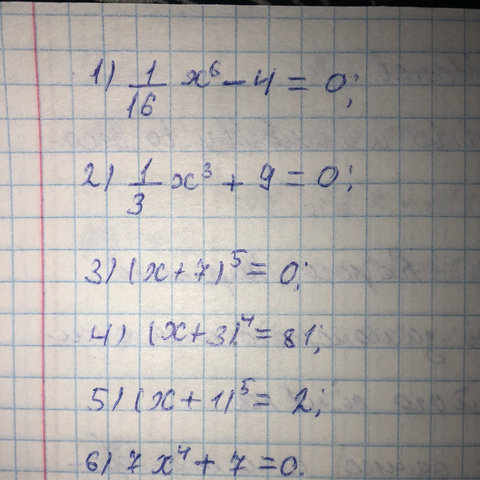 1) 1/16 x⁶ – 4 = 0;
2) 1/3 x³ + 9 = 0;
3) (x + 7)⁵ = 0;
4) (x + 3)⁴ = 81;
5) (x + 1)⁵ = 2;
6) 7x⁴ + 7 = 0.